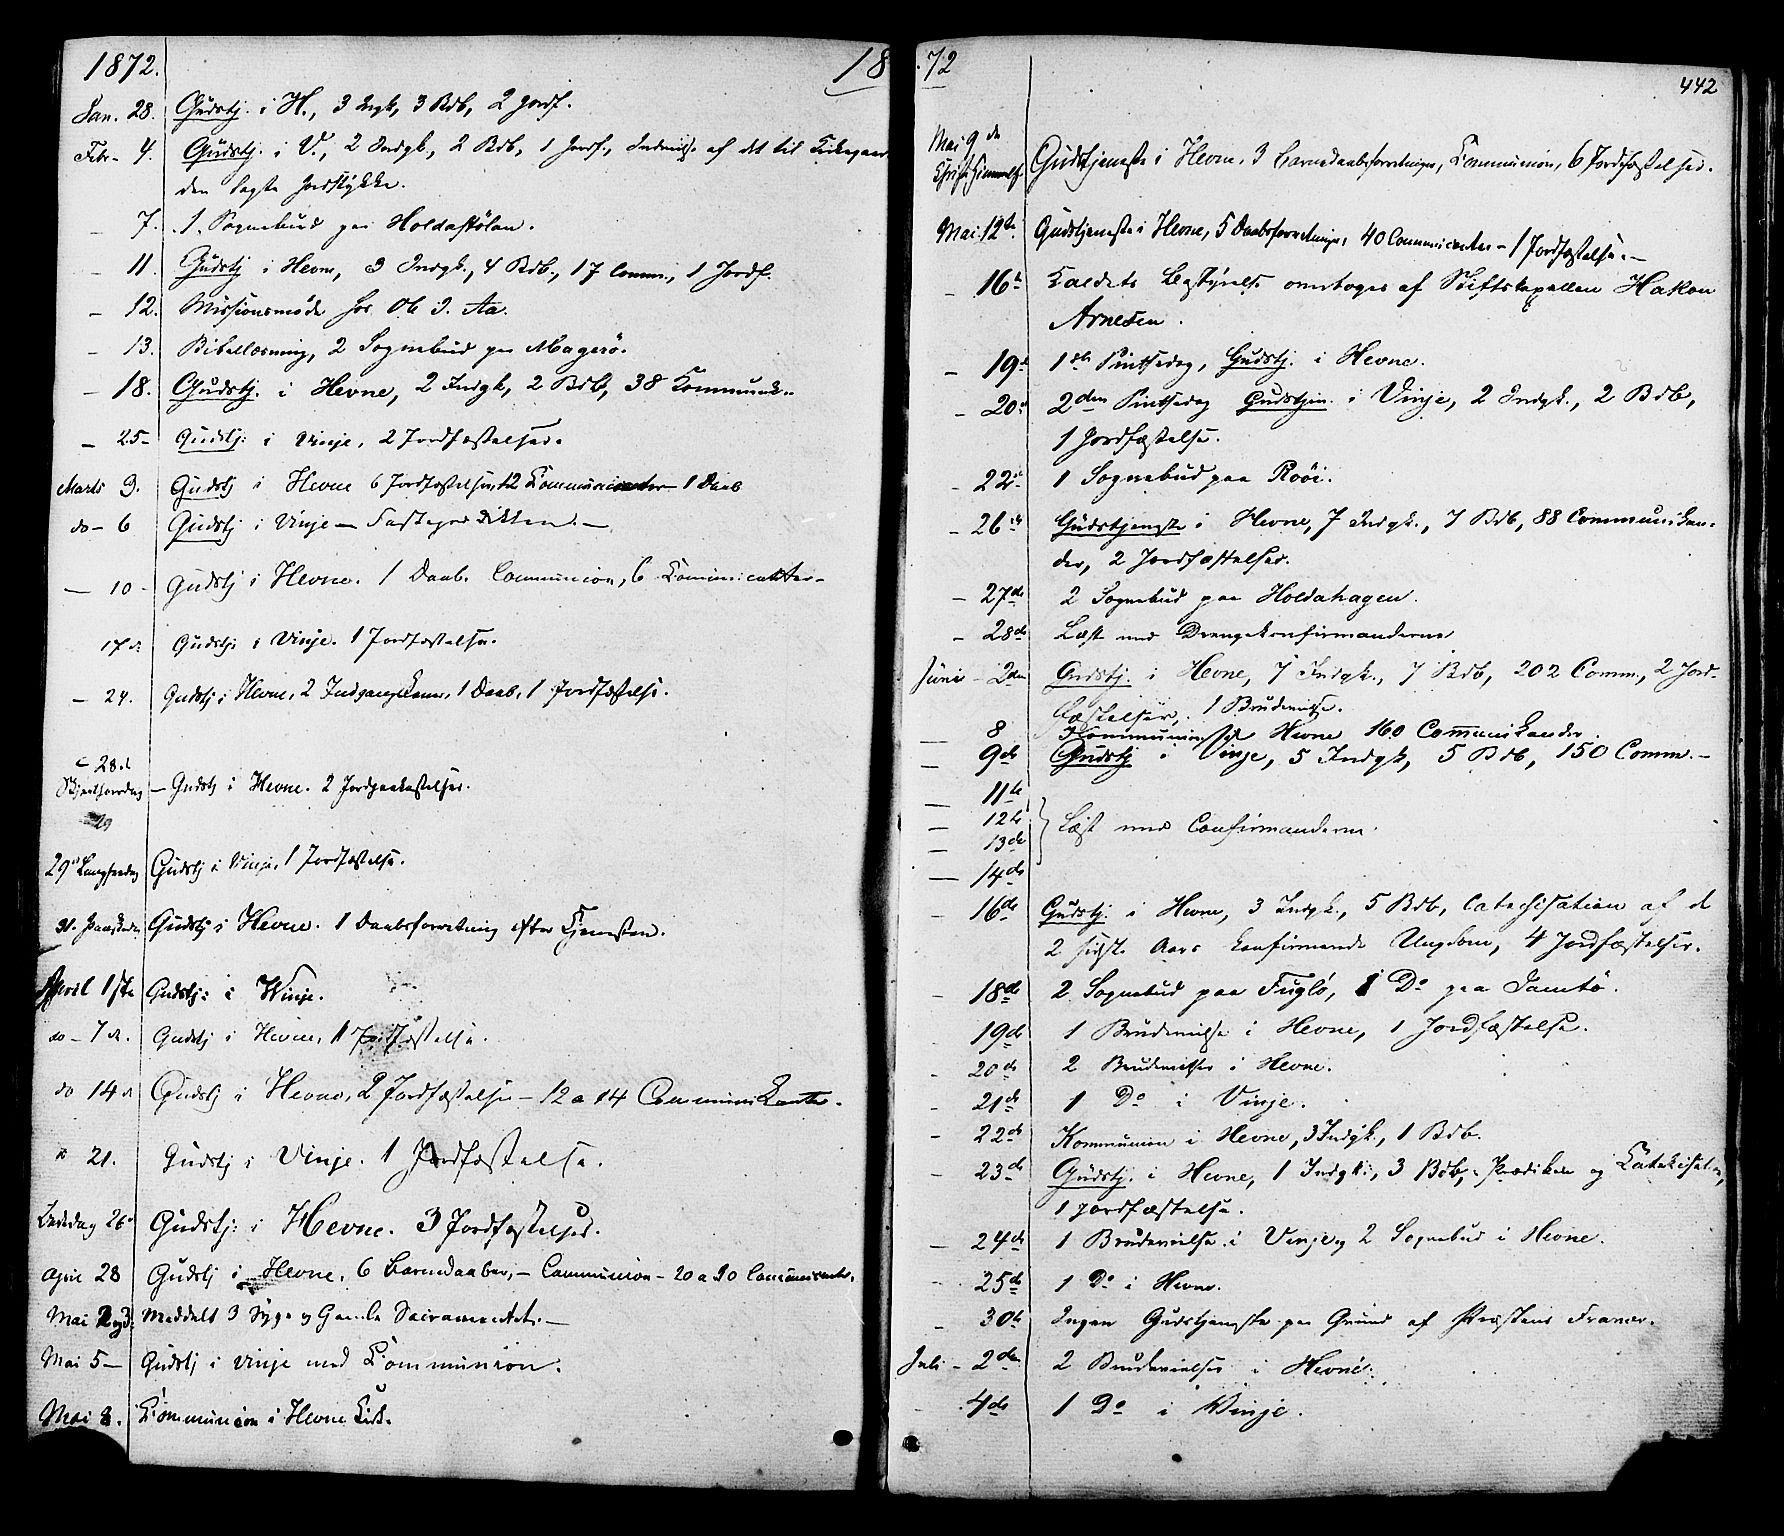 1872.
Jan. 28. Gudstj. i H., 3 Ingk, 3 Bdb, 2 Jordf.
Febr - 4. Gudstj. i V., 2 Indgk., 2 Bdb, 1 Jordf., af det til
den Jordstykke.
- 7. 1 Sognebud paa Holdastølan.
- 11. Gudstj i Hevne, 3 Indgk., 4 Bdb., 17 Comm., 1 Jordf.
- 12. Missionsmøde hos Ole J. Aa.
- 13. Bibellæsning, 2 Sognebud paa Magerø.
- 18. Gudstj. i Hevne, 2 Indgk, 2 Bdb, 38 Kommunik..
- 25 - Gudstj: i Vinje, 2 Jordfæstelser.
Marts 3. Gudstj i Hevne 6 Jordfæstelser, 12 Kommunicanter - 1 Daab
do - 6 Gudstj i Vinje -
- 10 - Gudstj i Hevne. 1 Daab. Communion, 6 Comunicanter -
17 d. Gudstj. i Vinje. 1 Jordfæstelse.
- 24. Gudstj i Hevne, 2 Indgangskoner, 1 Daab, 1 Jordfæstelse.
- 28.d
Skjærthorsdag - Gudstj i Hevne. 2 Jordpaakastelser.
29d Langfredag Gudstj i Vinje, 1 Jordfæstelse.
31. Paaskedag Gudstj i Hevne. 1 Daabsforretning efter Tjenesten.
April 1ste Gudstj: i Winje.
do - 7 d. Gudstj i Hevne, 1 Jordfæstelse.
do 14 d Gudstj i Hevne, 2 Jordfæstelser - 12 a 14 Communikanter.
d 21. Gudstj i Vinje. 1 Jordfæstelse.
Bededag 26d Gudstj: i Hevne. 3 Jordfæstelser.
April 28 Gudstj i Hevne. 6 Barnedaaber, - Communion - 20 a 30 Comunicanter.
Mai 2 og 3. Meddelt 3 Syge og Gamle Sacramentet. -
Mai 5 - Gudstj i Vinje med Communion.
Mai 8. Communion i Hevne Kirk.
1872
442
Mai 9de
Christi Himmelf. Gudstjeneste i Hevne. 3 Barnedaabsforretninger, Communion, 6 Jordfæstelser.
Mai 12te. Gudstjeneste i Hevne, 5 Daabsforretninger, 40 Communicanter - 1 Jordfæstelse. -
- 16de Kaldets Bestyrelse overtoges af Stiftskapellan Hakon
Arnesen.
- 19de 1ste Pintsedag, Gudstj. i Hevne.
- 20de 2den Pintsedag Gudstjen. i Vinje, 2 Indgk., 2 Bdb,
1 Jordfæstelse.
- 22de 1 Sognebud paa Roöi.
- 26de Gudstjeneste i Hevne, 7 Indgk., 7 Bdb, 88 Communikan-
der, 2 Jordfæstelser.
- 27de 2 Sognebud paa Holdahagen.
- 28de Læst med Drengekonfirmanderne
Juni - 2den Gudstj. i Hevne, 7 Indgk., 7 Bdb, 202 Comm., 2 Jord-
fæstelser, 1 Brudevielse.
- 8 Kommunion i Hevne 160 Communikander.
- 9de Gudstj i Vinje, 5 Indgk, 5 Bdb, 150 Comm. -
- 11te
- 12te
- 13de
- 14de
Læst med Confirmanderne.
- 16de Gudstj. i Hevne, 3 Indgk., 5 Bdb, Catechisation af de
2 sidste Aars konfirmerede Ungdom, 4 Jordfæstelser.
- 18de 2 Sognebud paa Fuglø, 1 Do paa Jamtö.
- 19de 1 Brudevielse i Hevne, 1 Jordfæstelse.
- 20de 2 Brudevielser i Hevne.
- 21de 1 Do i Vinje.
- 22de Kommunion i Hevne, 3 Indgk., 1 Bdb.
- 23de Gudstj. i Hevne, 1 Indgk., 3 Bdb, Prædiken og Katekisat.,
1 Jordfæstelse.
- 24de 1 Brudevielse i Vinje, 2 Sognebud i Hevne.
- 25de 1 Do i Hevne.
- 30te Ingen Gudstjeneste paa Grund af Præstens Fravær.
Juli - 2den 2 Brudevielser i Hevne.
- 4de 1 Do i Winje.